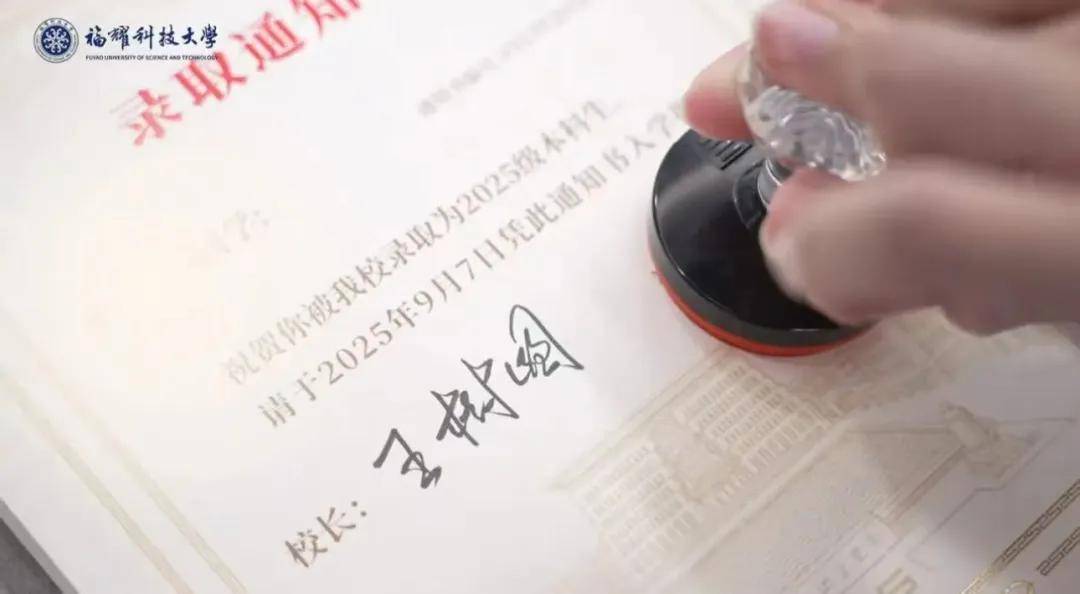 福耀科技大学
FUYAO UNIVERSITY OF SCIENCE AND TECHNOLOGY
录取通知
学：
祝贺你被我校录取为2025级本科生
请于2025年9月7日凭此通知书入学
校长：王树国